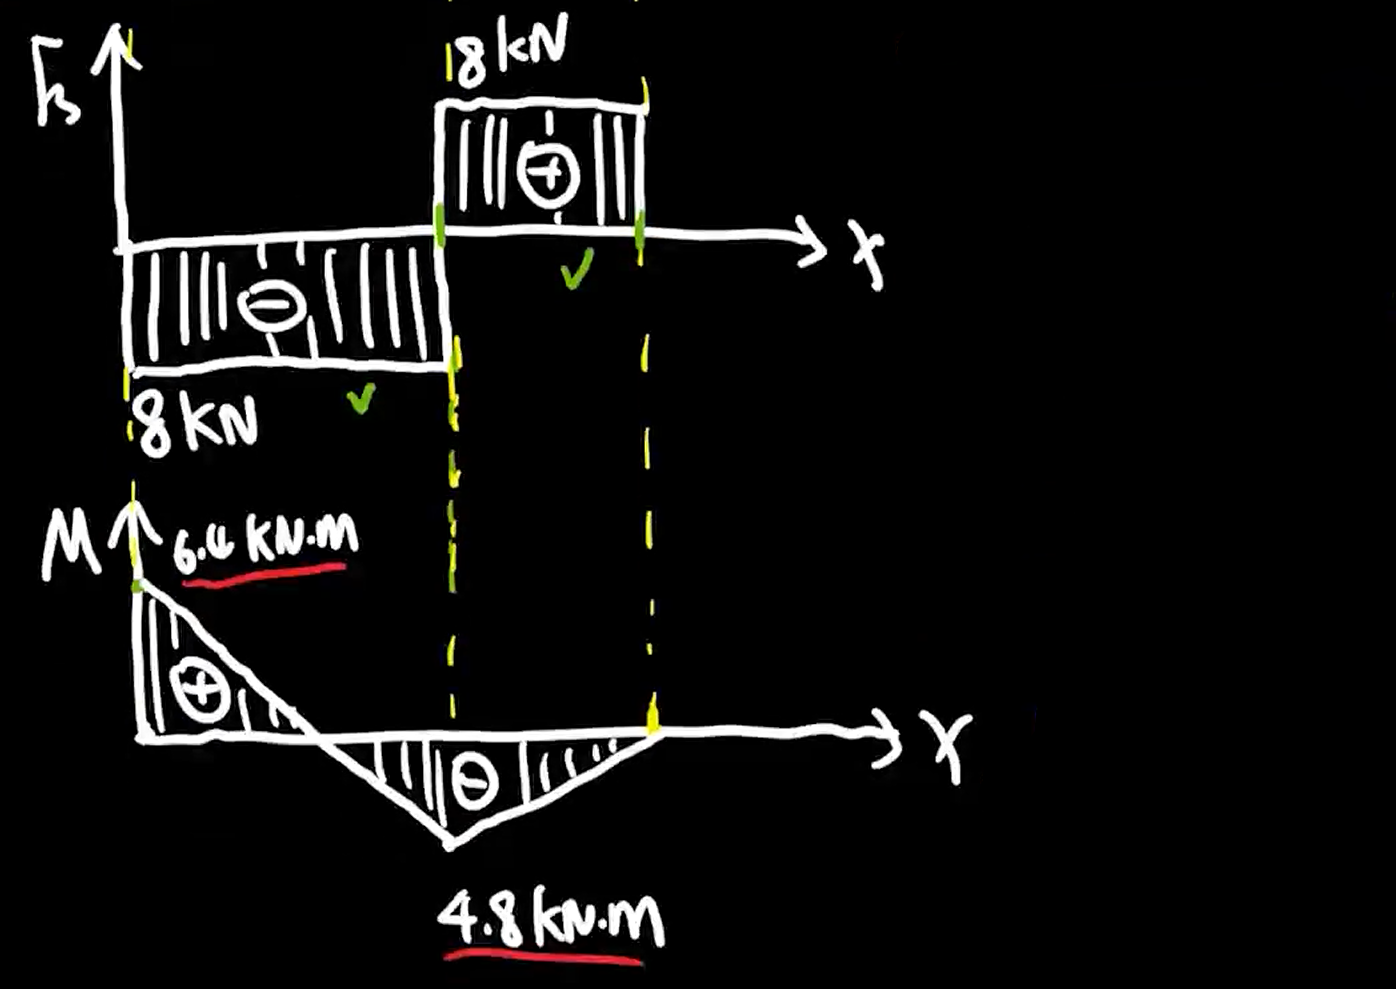 Fs
8 kN
+
x
−
8 kN
M
6.4 kN.m
+
x
−
4.8 kN.m